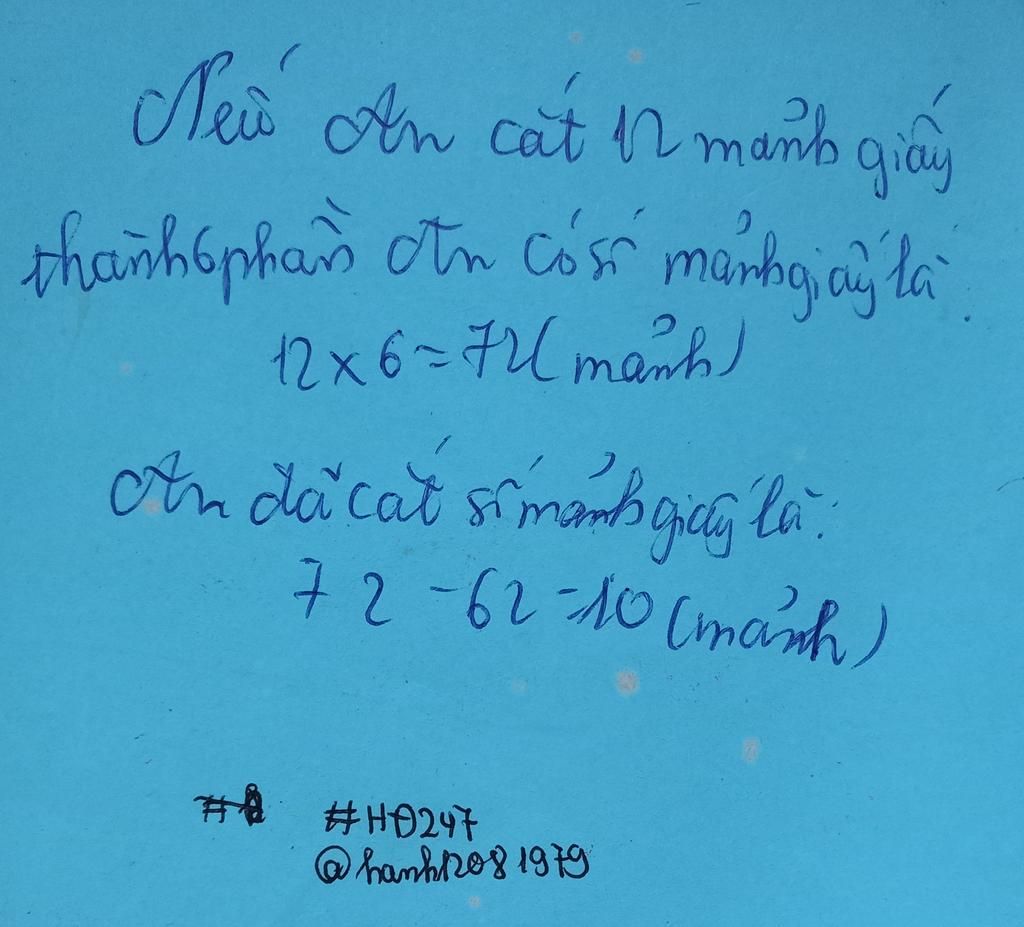 Nếu An cắt 12 mảnh giấy
thành 6 phần An có số mảnh giấy là:
12 x 6 = 72 (mảnh)
An đã cắt số mảnh giấy là:
72 - 62 = 10 (mảnh)
#HĐ247
@hanh12081979